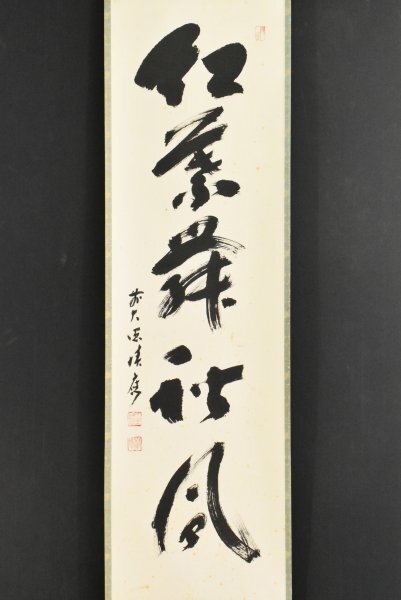 紅葉舞秋風
前大徳